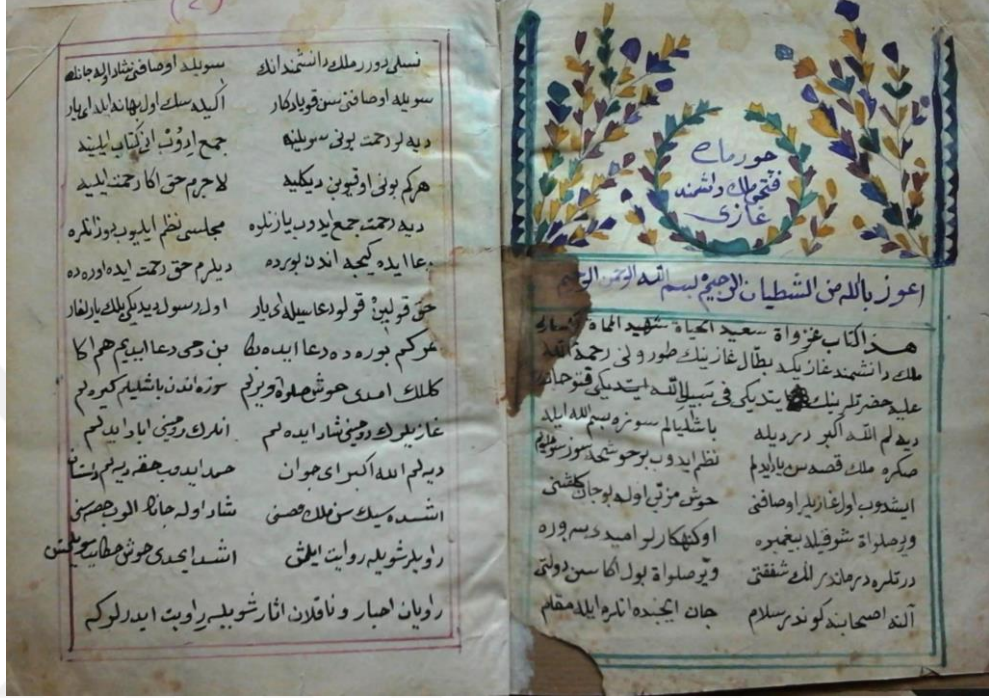 فتحى ملك دانشمند
غازى
اعوز بالله من الشطيان الرجيم بسم الله الرحمن الرحيم
هذا كتاب غزواة سعيد الحياة شهيد المماة
ملك دانشمند غازينك بطال غازينك طورونى رحمة الله
عليه حضرتلرينك ايتديكى فى سبيل الله ايتديكى
ديه لم الله اكبر دىر ديله باشليالم سوزه بسم الله ايله
صكره ملك قصه سن ياد ايدلم نظم ايدوب بو خوش سوز
ايشدوب اول غازيلر اوصافنى خوش مزين اوله بو جان كلشنى
وير صلواة شوقيله پيغمبره او كنهكارلر اميدى سروره
دردلره درماندر انك شفقتى وير صلواة بول اكا سن دولتى
آلنه اصحابنه كوندر سلام جان ايچنده انلره ايله مقام
نسلى دورر ملك دانشمندانك سويله اوصافنى شاد اوله جانك
سويله اوصافنى سن قو يادكار اكيله سك اول بهانه ايله اى يار
ديه لر رحمت بونى سويلينه جمع ادوب انى كتاب ايلينه
هركم بونى اوقيوبن ديكليه لا جرم حق اكا رحمت ايليه
ديه رحمت جمع ايدوب يازنلره مجلسى نظم ايليوب دوزنلره
دعا ايده كيجه اندن بورده ديلرم حق رحمت ايده اورده ده
حق قولين قولو دعاسيله اى يار اول رسول ديديكى
هركم بوره ده دعا ايده بكا بن دخى دعا ايديم هم اكا
كلك امدى خوش صلواة ويره لم سوزه اندن باشليلم كيره لم
غازيلرك روحينى شاد ايده لم انلرك روحينى اباد ايدلم
ديه لم الله اكبر اى جوان حمد ايدوب حقه ديه لم داستان
اشده سك سن ملك قصه سنى شاد اوله جانك الوب حصه سنى
راويلر شويله روايت ايلمش اشد ايمدى خوش حكايت سويلمش
راويان اخبار و ناقلان اثار شويله روايت ايدرلر كه